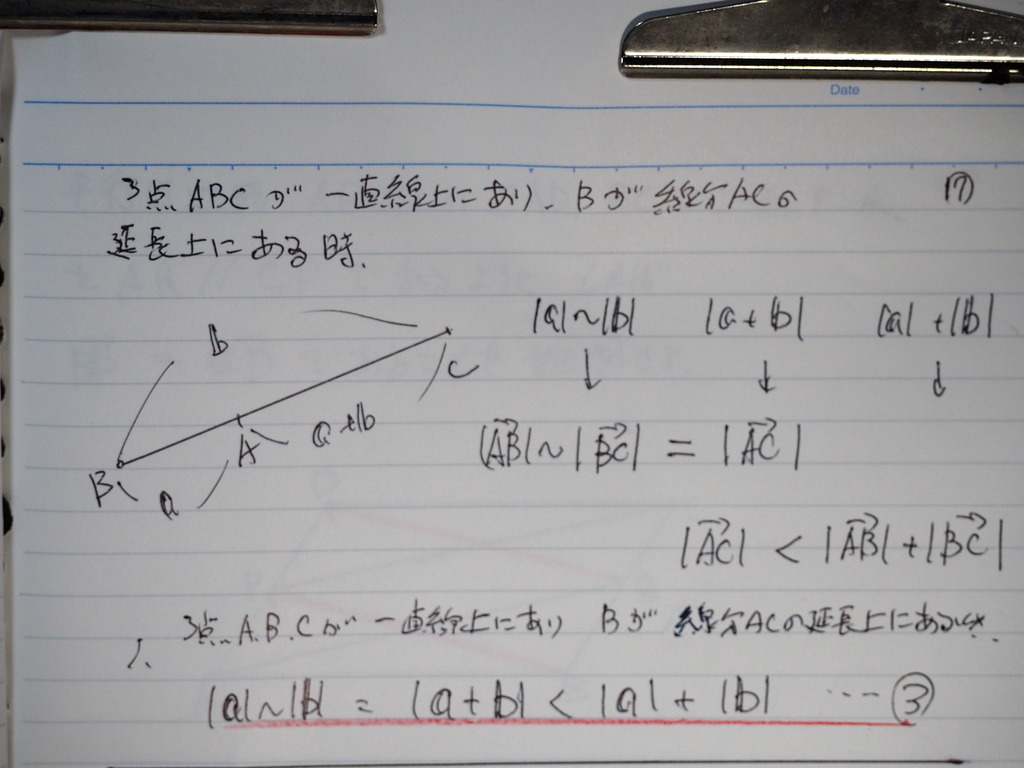 JAPAN
Date
3点 ABC が 一直線上にあり、Bが 線分ACの 17
延長上にある時、
|a|~|b| |a+b| |a|+|b|
↓ ↓ ↓
b
C
A a+b
B a
|AB|~|BC| = |AC|
|AC| < |AB|+|BC|
3点 A.B.Cが 一直線上にあり Bが 線分ACの延長上にある
|a|~|b| = |a+b| < |a|+|b| ---③